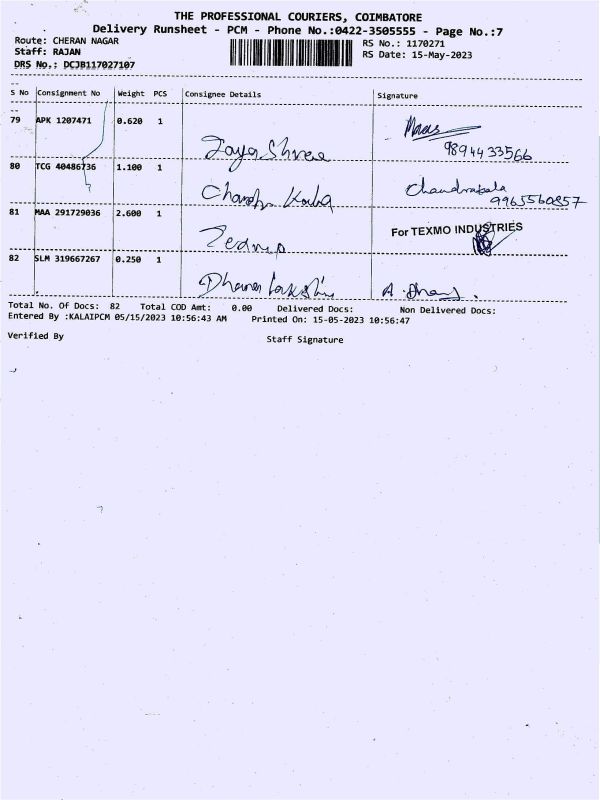 THE PROFESSIONAL COURIERS, COIMBATORE
Delivery Runsheet - PCM - Phone No.:0422-3505555 - Page No.:7
Route: CHERAN NAGAR
Staff: RAJAN
DRS No.: DCJB117027107
RS No.: 1170271
RS Date: 15-May-2023
S No Consignment No Weight PCS Consignee Details Signature
79 APK 1207471 0.620 1
Jaya Shree 9894433566
80 TCG 40486736 1.100 1
Chandrakala
9965560857
81 MAA 291729036 2.600 1
For TEXMO INDUSTRIES
82 SLM 319667267 0.250 1
A. Dhan
Total No. Of Docs: 82 Total COD Amt: 0.00 Delivered Docs: Non Delivered Docs:
Entered By :KALAIPCM 05/15/2023 10:56:43 AM Printed On: 15-05-2023 10:56:47
Verified By Staff Signature